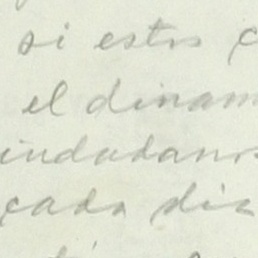 si estos c
el dinam
iudadanos
cada dia